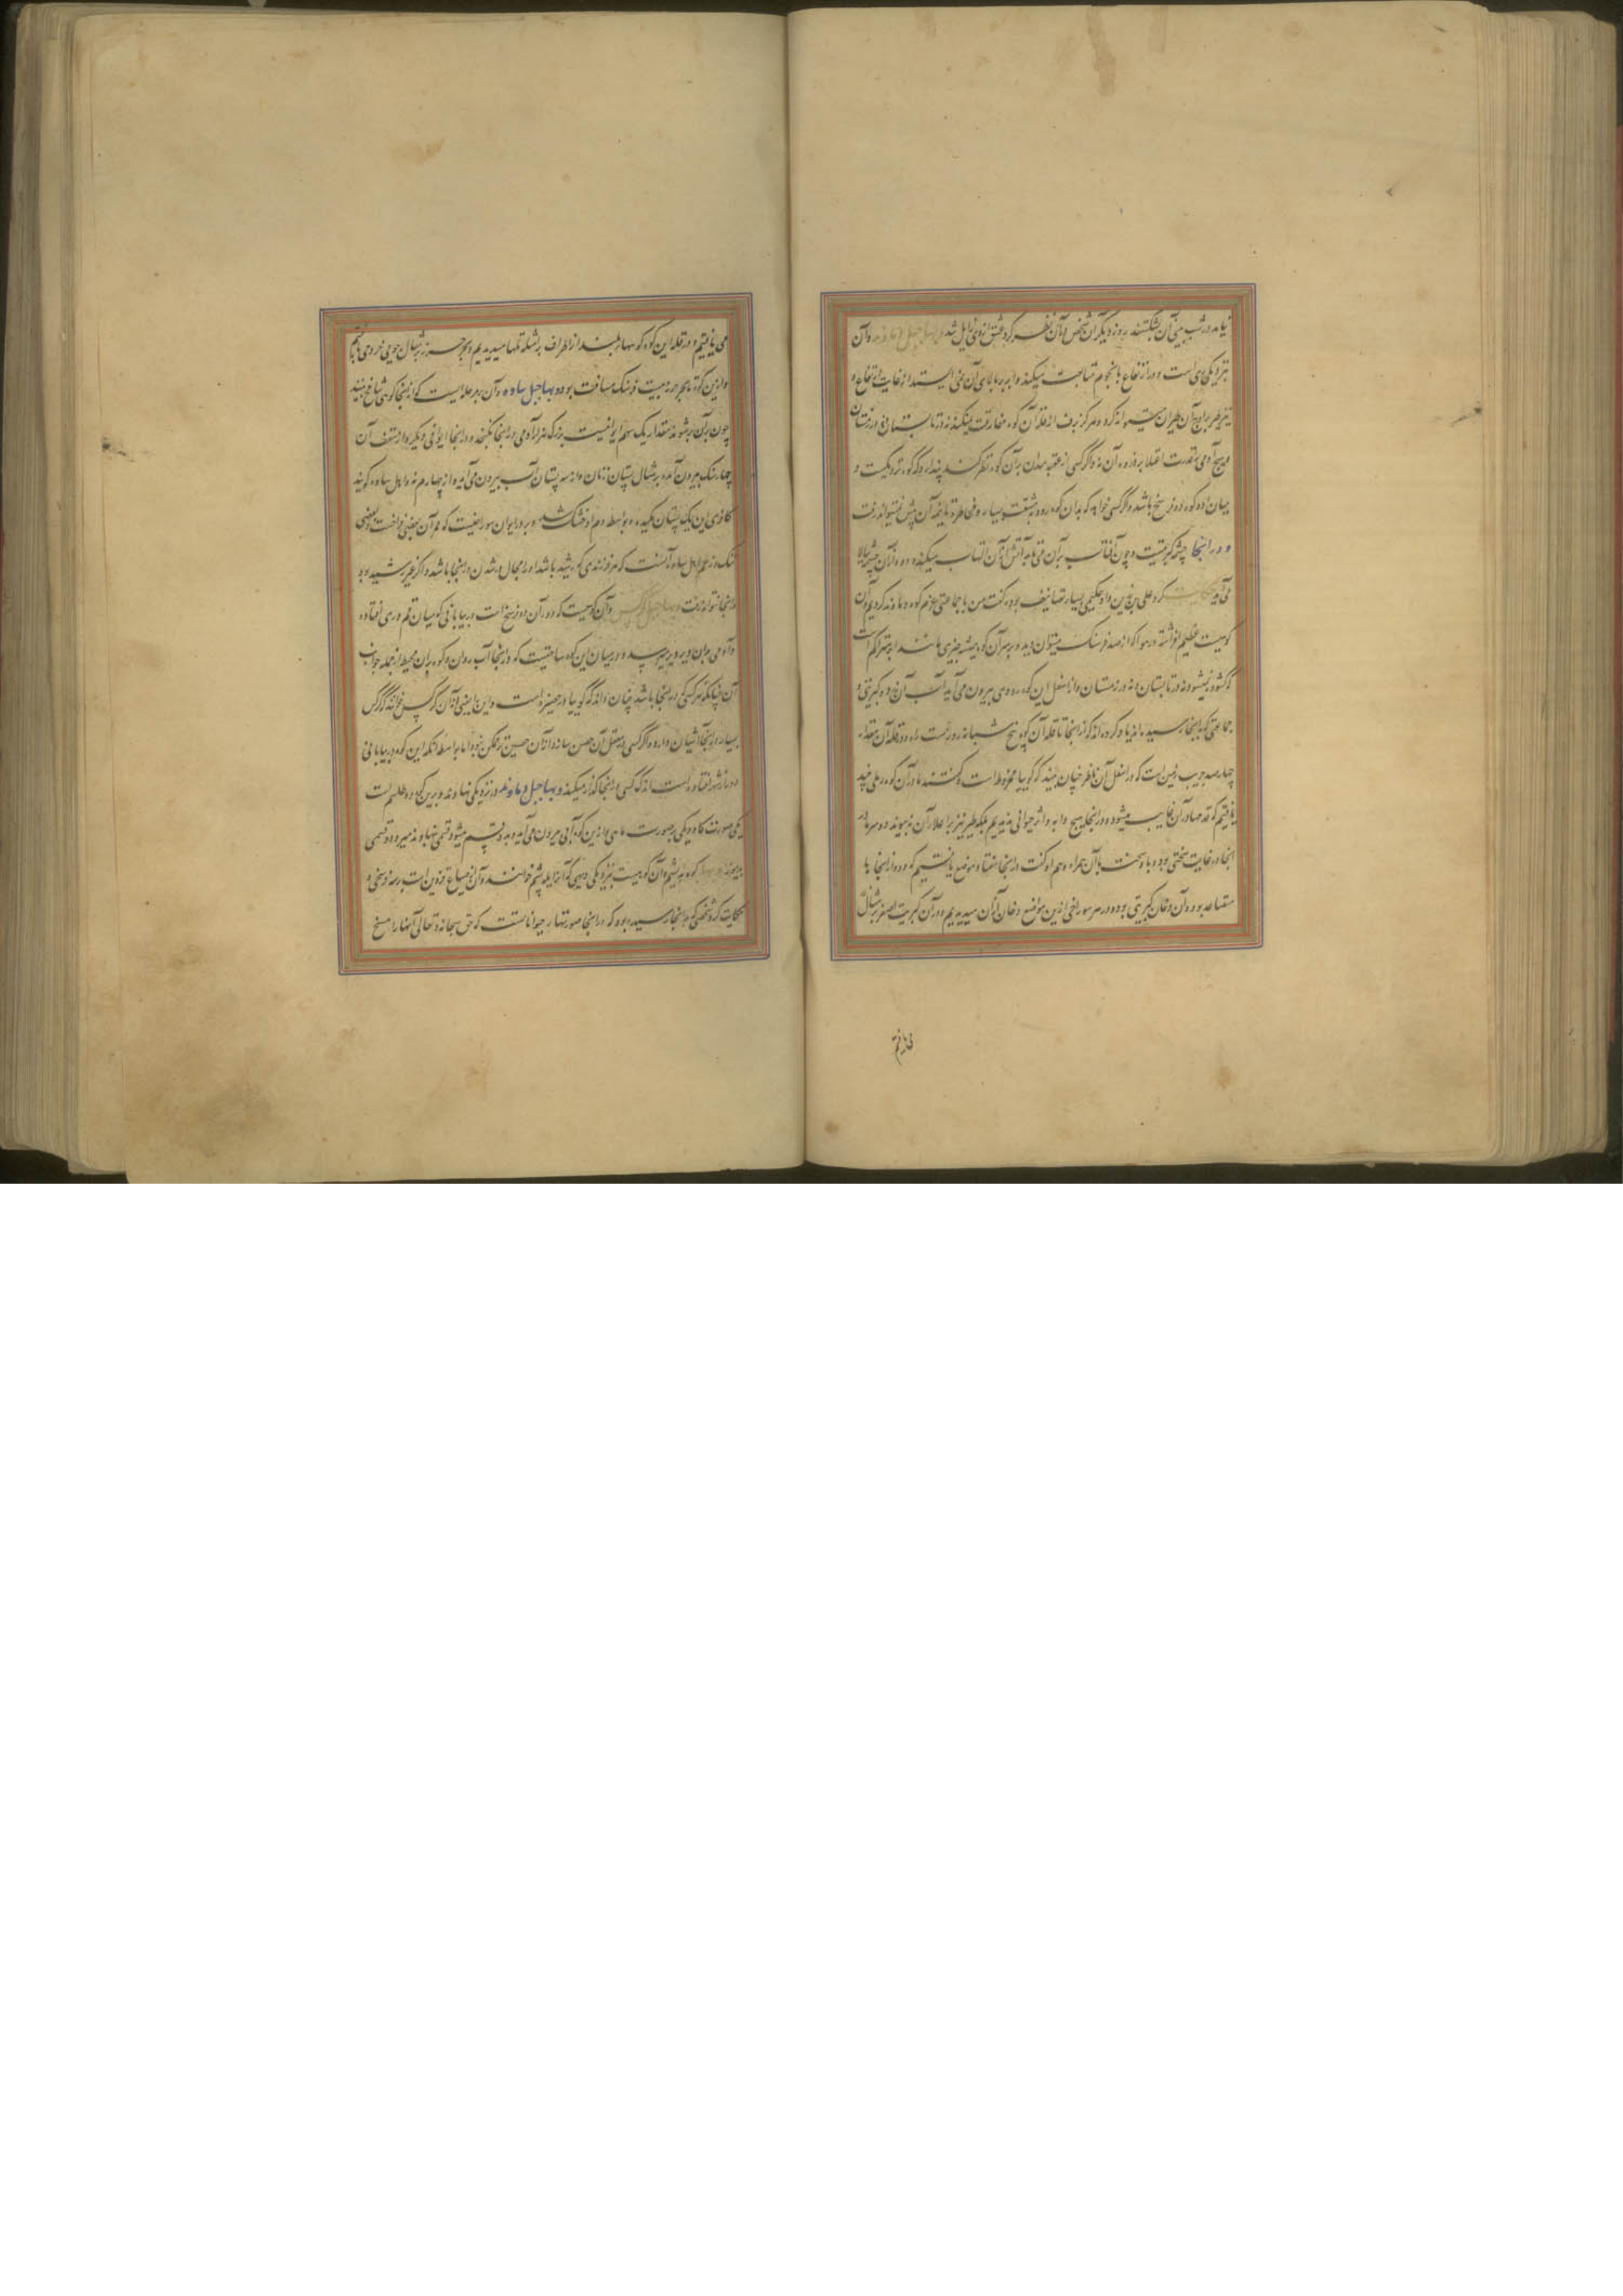 نیامد در شب بینی آن بشکستند روز دیگر آن شخص در آن نظر کرد عشق از وی زایل شد و منها جبل دماوند و آن
بنزدیکی ری است و در ارتفاع با نجوم مناصبت میکند و ابر بر بالای آن نمی ایستد از غایت ارتفاع و
نیز طیر بر اوج آن طیران نمیتواند کرد و هرگز برف از قلهٔ آن کوه مفارقت نمیکند نه در تابستان و نه در زمستان
و هیچ آدمی بقدرت اعتلا بر ذروه آن نه و اگر کسی از عقبه همدان بر آن کوه نظر کند پندارد که کوه نزدیکست و
میان او و کوه دو فرسخ باشد و اگر کسی خواهد که بدان کوه رود بمشقت بسیار و مخاطره تا نیمهٔ آن بیش نمیتواند رفت
و در آنجا چشمه کبریتیست و چون آفتاب بر آن می تابد آتش از آن التهاب میکند و دود از آن چشمه بالا
می آید حکایت کرد علی بن رزین و او حکیمی بسیار تصانیف بود گفت من با جماعتی عزم کوه دماوند کردیم و آن
کوهیست عظیم افراشته در هوا که از صد فرسنگ میتوان دید و بر سر آن کوه همیشه چیزی مانند ابر متراکم است
که گشوده نمیشود نه در تابستان و نه در زمستان و از اسفل این کوه رودی بیرون می آید آب آن زرد و کبریتی و
جماعتی که با اینجا رسیده اند یاد کرده اند که از اینجا تا قله آن کوه پنج شبانه روز است راه و در قله آن مقدار
چهارصد جریب زمین است که در اسفل آن ناظر چنان بیند که گویا مخروط است و گفتند ما در آن کوه رملی چند
یافتیم که قدمها در آن غایب میشود و در آنجا هیچ دابه و اثر حیوانی ندیدیم بلکه طیر نیز بر اعلا آن نمیرود و سرما در
آنجا در غایت سختی بود و باد سخت با آن همراه و هم او گفت در آنجا هفتاد موضع یافتیم که دود از اینجا ها
متصاعد بود و آن دخان کبریتی بود و در هر سوراخی ازین مواضع دخان از آن میدیدیم و در آن کبریت اصفر بر مثال
می یافتیم
می یافتیم و در قله این کوه کوههای بلند از اطراف بر شکل تلها میدیدیم و بحر خزر بر مثال جویی خرد می یافتیم
و ازین کوه تا بحر خزر بیست فرسنگ مسافت بود و منها جبل ساوه و آن بر مرحله ایست که از اینجا کوهی شامخ بیند
چون بر آن بر شوند مقدار یک سهم ایوانیست بزرگ هزار آدمی در آنجا بگنجد و در آنجا ایوانی دیگر و از سقف آن
چهار سنگ بیرون آمده بر مثال پستان زنان و از سه پستان آب بیرون می آید و از چهارم نه و اهل ساوه گویند
کافری این یک پستان مکیده و بواسطه دم او خشک شد و بر در ایوان سوراخیست که ممر آن بعضی فراخست و بعضی
تنگ و زعم اهل ساوه آنست که هر فرزندی که رشید باشد او را مجال در شدن در آنجا باشد و اگر غیر رشید بود
در آنجا نتواند رفت و منها جبل کرکس و آن کوهیست که دور آن ده فرسخ است در بیابانی که میان قم و ری افتاده
و آدمی بدان دیر دیر میرسد و در میان این کوه ساحتیست که در اینجا آب روان و کوه بدان محیط از جمله جوانب
آن چنانکه هر کسی که در اینجا باشد چنان داند که گویا در حظیره است و این را یعنی آن از آن کرکس خوانند که کرکس
بسیار در اینجا آشیان دارد و اگر کسی در معقل آن حصن سازد از آن حصین تر ممکن نبود اما بواسطه آنکه این کوه در بیابانی
دور از شهر افتاده است اندک کسی در اینجا گذار میکند و منها جبل دماوند در نزدیکی نهاوند و برین کوه دو طلسم است
یکی صورت گاو و یکی بر صورت ماهی و ازین کوه آبی بیرون می آید و بدو قسم میشود قسمی بنهاوند میرود و قسمی
بدینور و منها کوه یله بشم و آن کوهیست بنزدیکی دیهی که آنرا یله پشم خوانند و آن از ضیاع قزوین است بر سه فرسخی و
حکایت کرد شخصی که به آنجا رسیده بود که در آنجا صورتها بر حیواناتست که حق سبحانه و تعالی آنها را مسخ